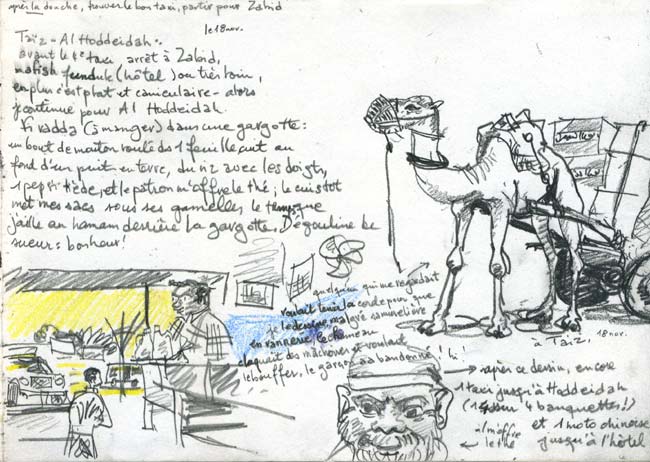 après la douche, trouver le bon taxi, partir pour Zabid
le 18 nov.
Taïz - Al Hoddeidah.
avant le taxi, arrêt à Zabid,
mafish funduk (hôtel) ou très loin,
en plus c'est plat et caniculaire - alors
je continue pour Al Hoddeidah.
radda (à manger) dans une gargote :
un bout de mouton roulé ds 1 feuille cuit au
fond d'un puit en terre, du riz avec les doigts,
1 pepsi tiède, et le patron m'offre le thé ; le cuistot
met mes sacs sous ses gamelles le temps que
j'aille au hamam derrière la gargote. Dégouline de
sueur : bonheur !
quelqu'un qui me regardait
voulait tenir la corde pour que
je le dessine, malgré sa muselière
en vannerie, le chameau
claquait des mâchoires et voulant
le bouffer, le garçon a abandonné ! hi !
à Taïz, 18 nov.
après ce dessin, encore
1 taxi jusqu'à Hoddeidah
(4 banquettes !!)
et 1 moto chinoise
jusqu'à l'hôtel
il m'offre
le thé